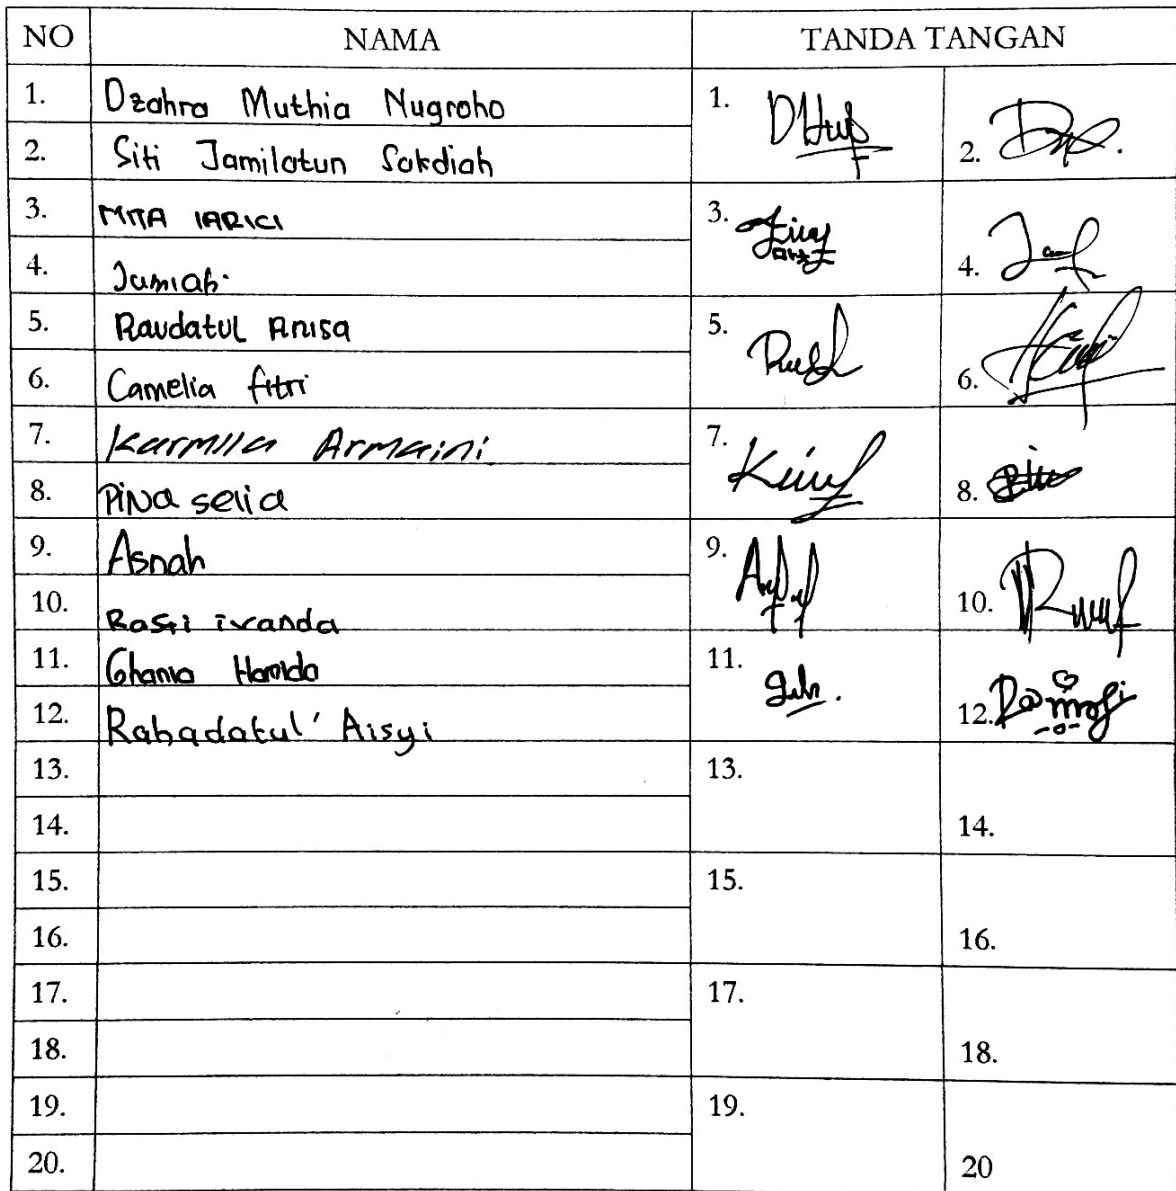 NO NAMA TANDA TANGAN
1. Dzahra Muthia Nugroho 1.
2. Siti Jamilatun Sakdiah 2.
3. MITA IARICI 3.
4. Jumiah. 4.
5. Raudatul Anisa 5.
6. Camelia fitri 6.
7. Karmila Armaini 7.
8. Pina selia 8.
9. Asnah 9.
10. Rasti ivanda 10.
11. Ghania Hamida 11.
12. Rahadatul' Aisyi 12.
13. 13.
14. 14.
15. 15.
16. 16.
17. 17.
18. 18.
19. 19.
20. 20